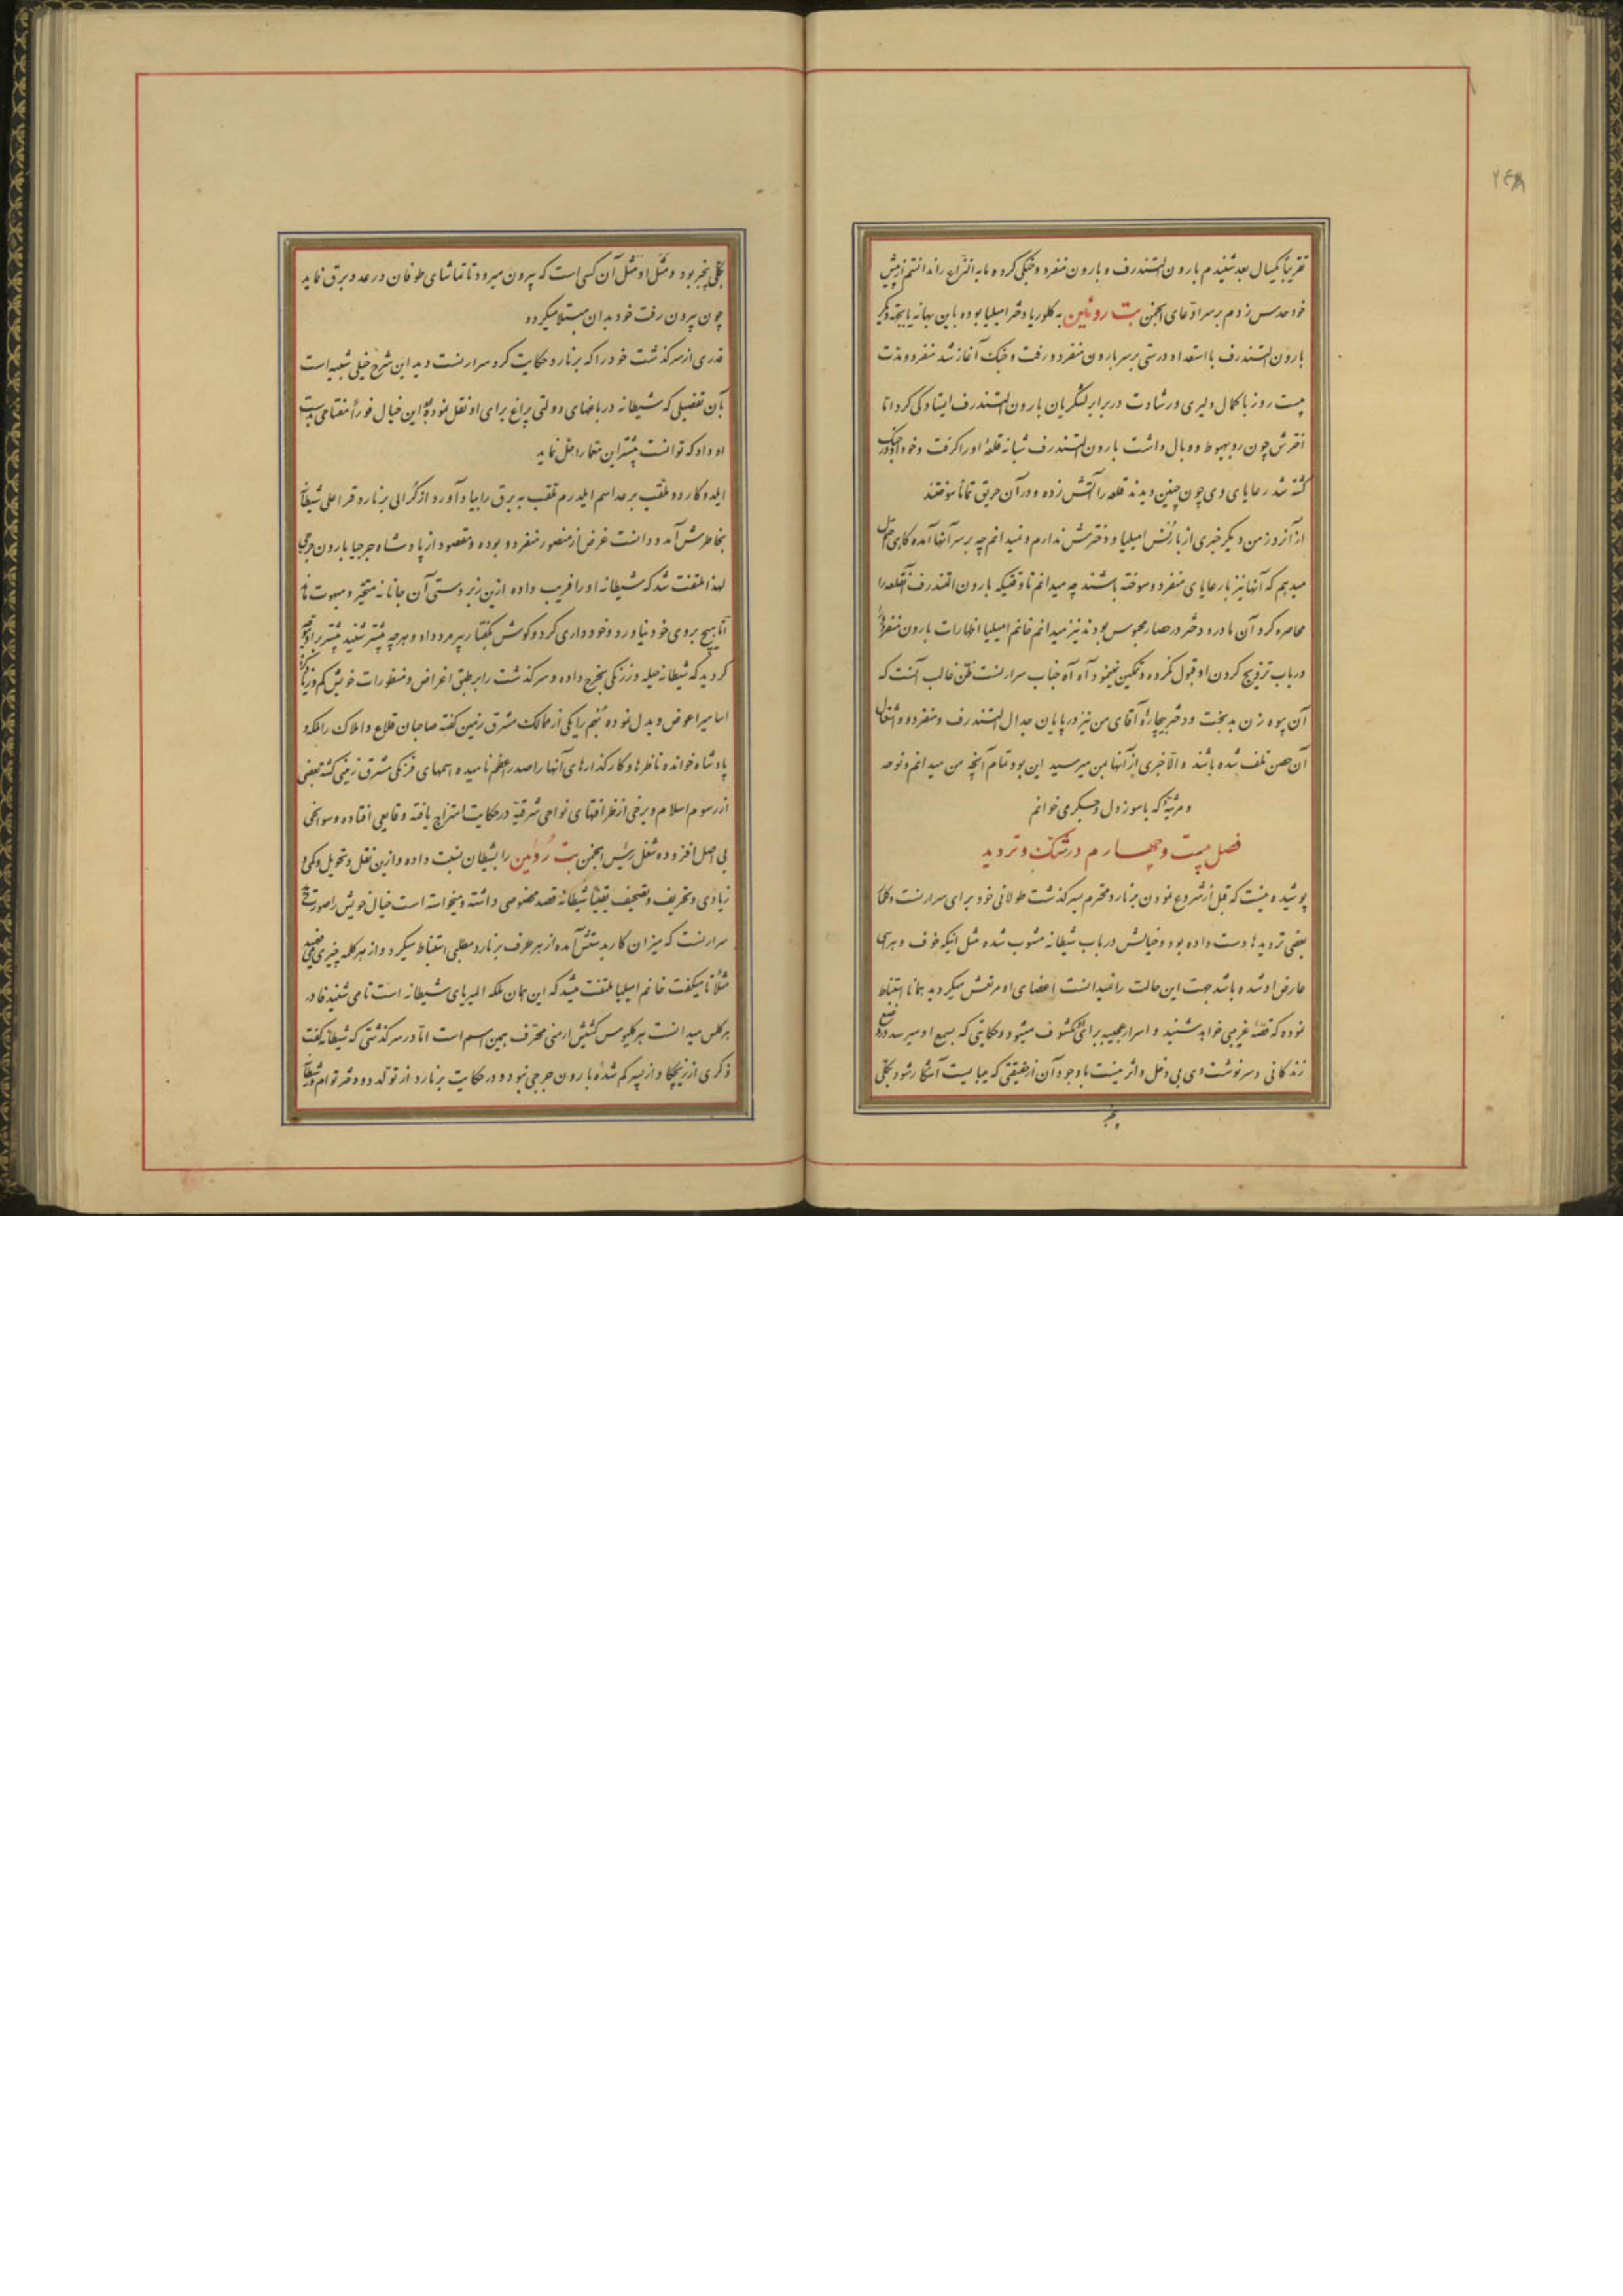 ۲۴۸
تقریباً یکسال بعد شنیدم بارون التندرف و بارون منفردو جنگی کرده مابه النزاع را ندانستم از پیش
خود حدس زدم بر سر ادعای انجمن بت روئین به کلوریا دختر امیلیا بوده باین بهانه یا بجهة دیگر
بارون التندرف با استعداد درستی بر سر بارون منفردو رفت و جنگ آغاز شد منفردو مدت
بیست روز با کمال دلیری و رشادت در برابر لشگریان بارون التندرف ایستادگی کرد اما
اخترش چون رو بهبوط و وبال داشت بارون التندرف شبانه قلعهٔ او را گرفت و خود او در جنگ
کشته شد رعایای وی چون چنین دیدند قلعه را آتش زده و در آن حریق تماماً سوختند
از آنروز من دیگر خبری از بارُنس امیلیا و دخترش ندارم و نمیدانم چه بر سر آنها آمده گاهی احتمال
میدهم که آنها نیز با رعایای منفردو سوخته باشند چه میدانم تا وقتیکه بارون التندرف آنقلعه را
محاصره کرد آن مادر و دختر در حصار محبوس بودند نیز میدانم خانم امیلیا اظهارات بارون منفردو را
در باب تزویج کردن او قبول نکرده و تمکین ننمود آه آه جناب سرارنست ظن غالب آنست که
آن بیوه زن بدبخت و دختر بیچارهٔ آقای من نیز در پایان جدال التندرف و منفردو و اشتعال
آن حصن تلف شده باشند والا خبری از آنها بمن میرسید این بود تمام آنچه من میدانم و نوحه
و مرثیهٔ که با سوز دل و جگر می خوانم
فصل بیست و چهارم در شک و تردید
پوشیده نیست که قبل از شروع نمودن برنارد محترم بسرگذشت طولانی خود برای سرارنست و کلنا
بعضی تردیدها دست داده بود و خیالش در باب شیطانه مشوب شده مثل اینکه خوف و هراسی
عارض او شده باشد جهت این حالت را نمیدانست اعضای او مرتعش میگردید همانا استنباط
نموده که قصهٔ غریبی خواهد شنید و اسرار عجیبه برای او مکشوف میشود و حکایتی که بسمع او میرسد در وضع
زندگانی و سرنوشت وی بی دخل و اثر نیست با وجود آن از حقیقتی که میبایست آشکار شود بکلی
بیخبر
بکلی بیخبر بود و مَثَل او مثل آن کسی است که بیرون میرود تا تماشای طوفان و رعد و برق نماید
چون بیرون رفت خود بدان مبتلا میگردد
قدری از سرگذشت خود را که برنارد حکایت کرد سرارنست دید این شرح خیلی شبیه است
بآن تفضیلی که شیطانه در باغهای دولتی پراغ برای او نقل نموده بود این خیال فوراً مفتاحی بدست
او داد که توانست بیشتر این معما را حل نماید
ایلدوکاردو ملقب برعد اسم ایلدرم ملقب به برق را بیاد آورد از گرالی برنارد قراعلی شیطانه
بخاطرش آمد و دانست غرض از منصور منفردو بوده و مقصود از پادشاه جرجیا بارون جرجی
لهذا ملتفت شد که شیطانه او را فریب داده ازین زبردستی آن جانانه متحیر و مبهوت ماند
اما هیچ بروی خود نیاورد و خودداری کرد و گوش بگفتار پیرمرد داد و هر چه بیشتر شنید بیشتر بر او محقق
گردید که شیطانه حیله و زرنگی بخرج داده و سرگذشت را بر طبق اغراض و منظورات خویش کم و زیاد کرده
اسامی را عوض و بدل نموده منجم را یکی از ممالک مشرق زمین گفته صاحبان قلاع و املاک را ملک و
پادشاه خوانده ناظرها و کارگذارهای آنها را صدراعظم نامیده اسمهای فرنگی مشرق زمینی گشته بعضی
از رسوم اسلام و برخی از ظرافتهای نواحی شرقیه در حکایت امتزاج یافته وقایعی افتاده و سوانحی
بی اصل افزوده شغل رئیس انجمن بت رُوئین را بشیطان نسبت داده و ازین نقل و تحویل و کمی و
زیادی و تحریف و تصحیف یقیناً شیطانه قصد مخصوصی داشته و میخواسته است خیال خویش را صورت دهد
سرارنست که میزان کار بدستش آمده از هر طرف برنارد مطلبی استنباط میکرد و از هر کلمه چیزی میفهمید
مثلاً تا میگفت خانم امیلیا ملتفت میشد که این همان ملکه المیریای شیطانه است تا می شنید فادر
هرکلس میدانست هرکلیوس کشیش ارمنی محترف بهمین اسم است اما در سرگذشتی که شیطانه گفت
ذکری از زیچکا و از پسر گم شدهٔ بارون جرجی نبود و در حکایت برنارد از تولد دو دختر توام شیطانه